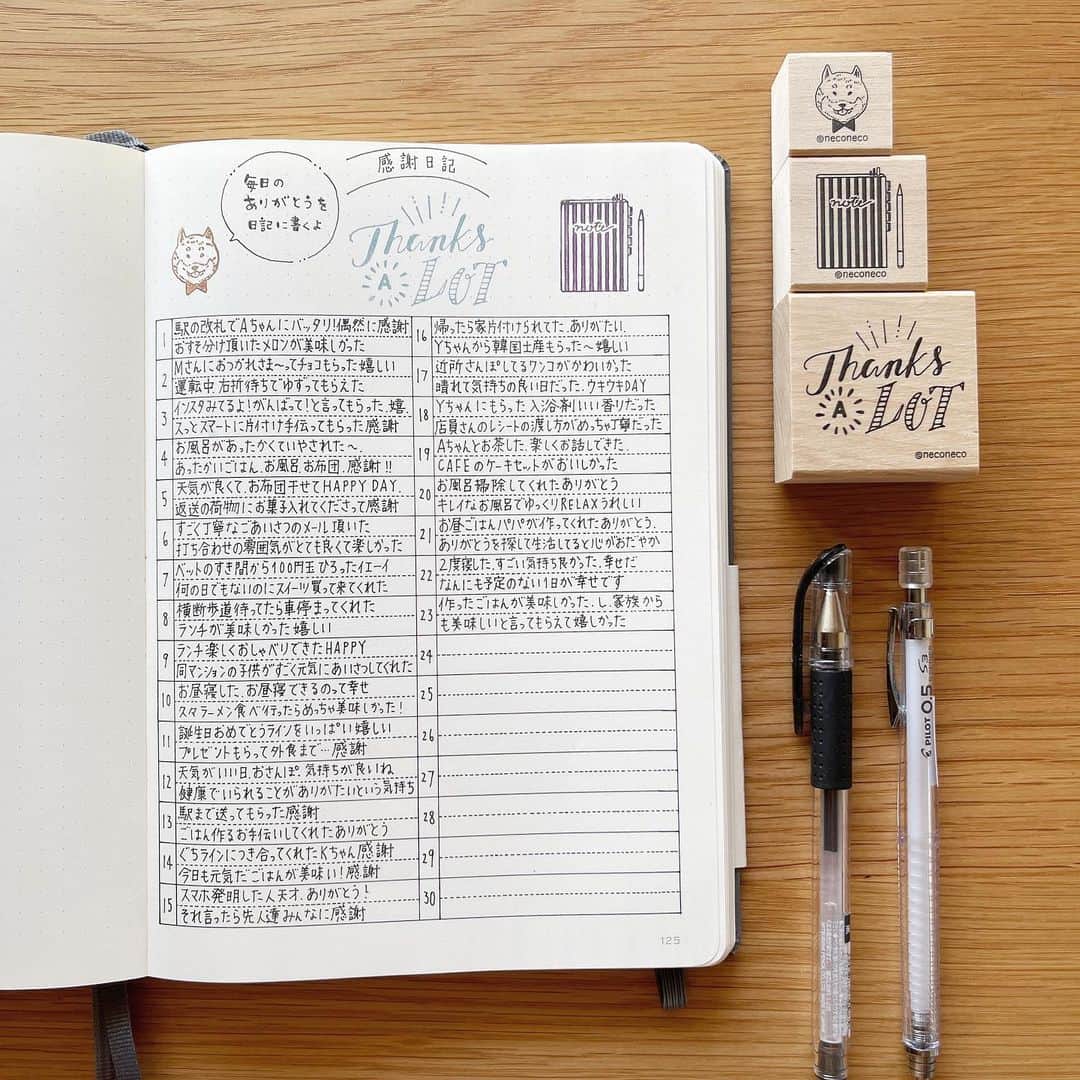 毎日の
ありがとうを
日記に書くよ
感謝日記
Thanks
A LOT
note
1
駅の改札でAちゃんにバッタリ!偶然に感謝
おすそ分け頂いたメロンが美味しかった
2
Mさんにおつかれさま〜ってチョコもらった嬉しい
運転中 右折待ちでゆずってもらえた
3
インスタみてるよ!がんばって!と言ってもらった.嬉.
スッとスマートに片付け手伝ってもらった 感謝
4
お風呂があったかくていやされた〜
あったかいごはん.お風呂.お布団.感謝!!
5
天気が良くて.お布団干せてHAPPY DAY
返送の荷物にお菓子入れてくださって感謝
6
すごく丁寧なごあいさつのメール頂いた
打ち合わせの雰囲気がとても良くて楽しかった
7
ベットのすき間から100円玉ひろったイエーイ
何の日でもないのにスイーツ買って来てくれた
8
横断歩道待ってたら車停まってくれた
ランチが美味しかった 嬉しい
9
ランチ楽しくおしゃべりできたHAPPY
同マンションの子供がすごく元気にあいさつしてくれた
10
お昼寝した.お昼寝できるのって幸せ
スタラーメン食べ行ったらめっちゃ美味しかった!
11
誕生日おめでとうラインをいっぱい嬉しい
プレゼントもらって外食まで…感謝
12
天気がいい日.おさんぽ 気持ちが良いね
健康でいられることがありがたいという気持ち
13
駅まで送ってもらった感謝
ごはん作るお手伝いしてくれたありがとう
14
ぐちラインにつき合ってくれたKちゃん感謝
今日も元気だごはんが美味い!感謝
15
スマホ発明した人天才.ありがとう!
それ言ったら先人達みんなに感謝
16
帰ったら家片付けられてた.ありがたい.
Yちゃんから韓国土産もらった〜嬉しい
17
近所さんぽしてるワンコがかわいかった
晴れて気持ちの良い日だった.ウキウキDAY
18
Yちゃんにもらった入浴剤いい香りだった
店員さんのレシートの渡し方がめっちゃ丁寧だった
19
Aちゃんとお茶した.楽しくお話しできた
CAFEのケーキセットがおいしかった
20
お風呂掃除してくれたありがとう
キレイなお風呂でゆっくりRELAXうれしい
21
お昼ごはんパパが作ってくれたありがとう.
ありがとうを探して生活してると心がおだやか
22
2度寝した.すごい気持ち良かった.幸せだ
なんにも予定のない1日が幸せです
23
作ったごはんが美味しかった.し.家族から
も美味しいと言ってもらえて嬉しかった
24
25
26
27
28
29
30
125
@neconeco
note
@neconeco
Thanks
A LOT
@neconeco
PILOT 0.5 S3